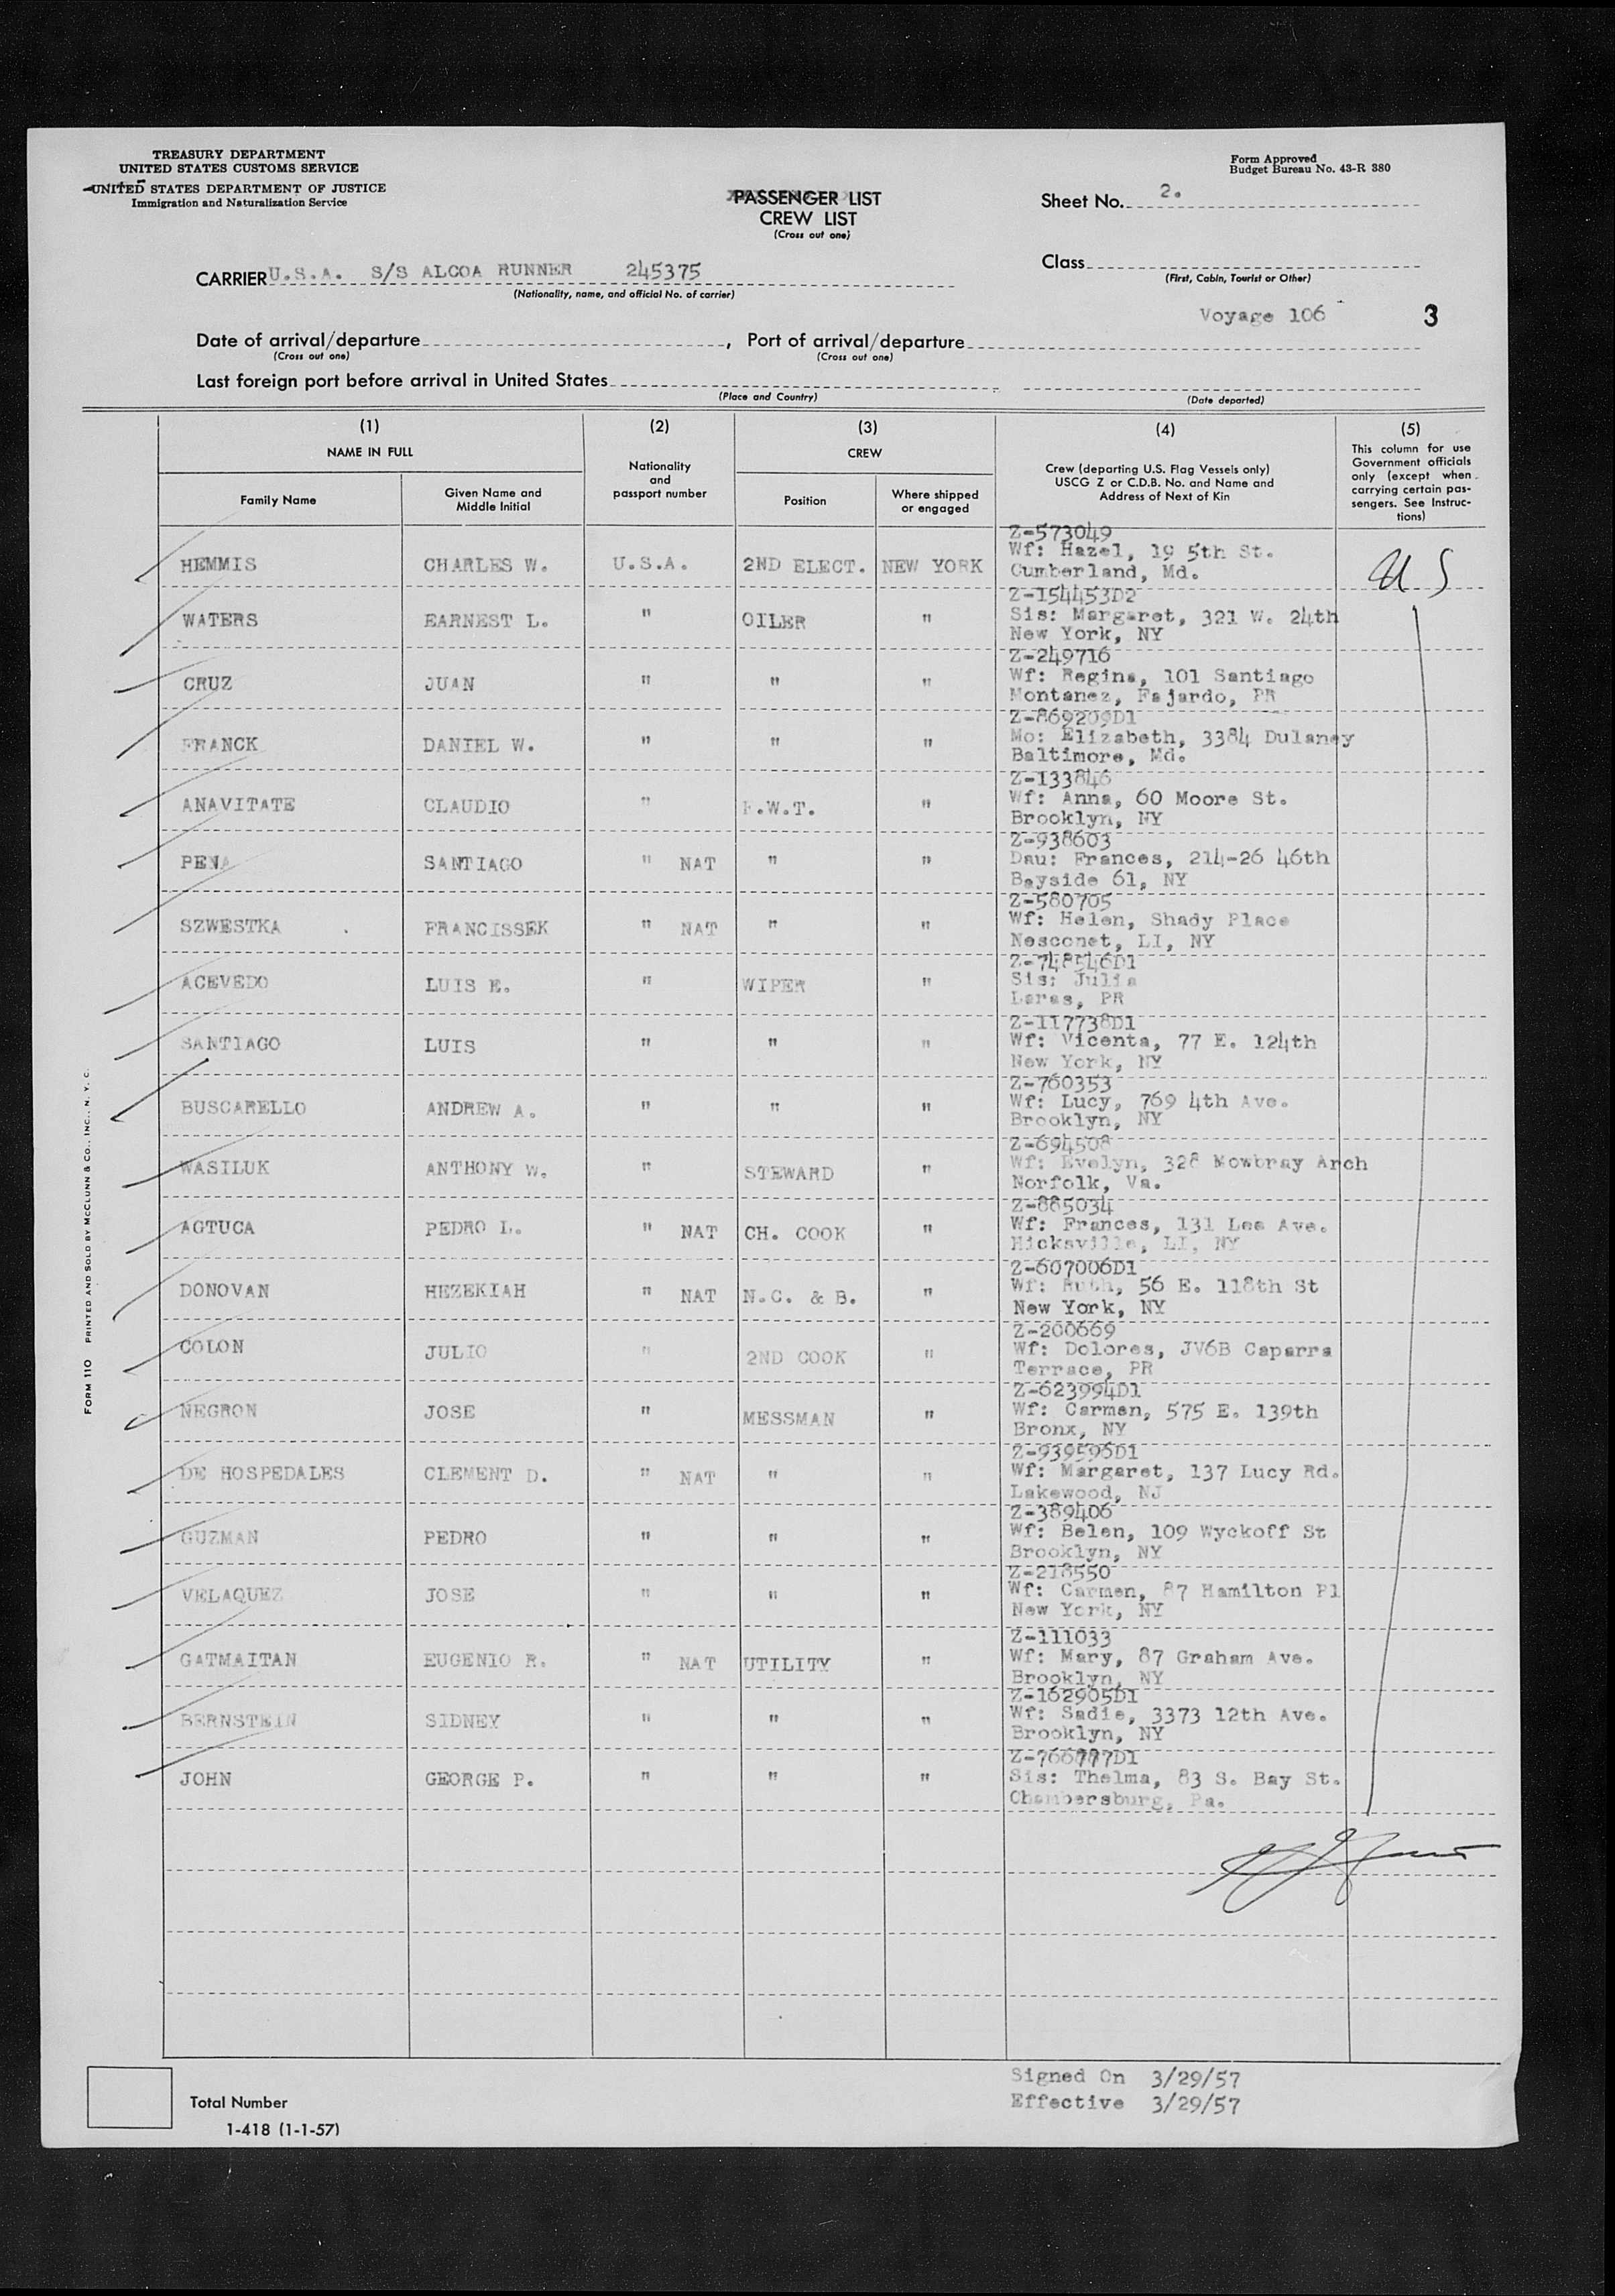 TREASURY DEPARTMENT
UNITED STATES CUSTOMS SERVICE
UNITED STATES DEPARTMENT OF JUSTICE
Immigration and Naturalization Service
Form Approved
Budget Bureau No. 43-R 380
PASSENGER LIST
CREW LIST
(Cross out one)
Sheet No. 2.
CARRIER U.S.A. S/S ALCOA RUNNER 245375
(Nationality, name, and official No. of carrier)
Class
(First, Cabin, Tourist or Other)
Voyage 106 3
Date of arrival/departure , Port of arrival/departure
(Cross out one) (Cross out one)
Last foreign port before arrival in United States
(Place and Country) (Date departed)
(1) (2) (3) (4) (5)
NAME IN FULL
Family Name
Given Name and
Middle Initial
Nationality
and
passport number
CREW
Position
Where shipped
or engaged
Crew (departing U.S. Flag Vessels only)
USCG Z or C.D.B. No. and Name and
Address of Next of Kin
This column for use
Government officials
only (except when
carrying certain pas-
sengers. See Instruc-
tions)
Z-573049
HEMMIS CHARLES W. U.S.A. 2ND ELECT. NEW YORK Wf: Hazel, 19 5th St. US
Cumberland, Md.
Z-154453D2
WATERS EARNEST L. " OILER " Sis: Margaret, 321 W. 24th
New York, NY
Z-249716
CRUZ JUAN " " " Wf: Regina, 101 Santiago
Montanez, Fajardo, PR
Z-869209D1
FRANCK DANIEL W. " " " Mo: Elizabeth, 3384 Dulaney
Baltimore, Md.
Z-133846
ANAVITATE CLAUDIO " F.W.T. " Wf: Anna, 60 Moore St.
Brooklyn, NY
Z-938603
PENA SANTIAGO " NAT " " Dau: Frances, 214-26 46th
Bayside 61, NY
Z-580705
SZWESTKA FRANCISSEK " NAT " " Wf: Helen, Shady Place
Nesconet, LI, NY
Z-748546D1
ACEVEDO LUIS E. " WIPER " Sis: Julia
Lares, PR
Z-117738D1
SANTIAGO LUIS " " " Wf: Vicenta, 77 E. 124th
New York, NY
Z-760353
BUSCARELLO ANDREW A. " " " Wf: Lucy, 769 4th Ave.
Brooklyn, NY
Z-694508
WASILUK ANTHONY W. " STEWARD " Wf: Evelyn, 328 Mowbray Arch
Norfolk, Va.
Z-885034
AGTUCA PEDRO L. " NAT CH. COOK " Wf: Frances, 131 Lee Ave.
Hicksville, LI, NY
Z-607006D1
DONOVAN HEZEKIAH " NAT N.C. & B. " Wf: Ruth, 56 E. 118th St
New York, NY
Z-200669
COLON JULIO " 2ND COOK " Wf: Dolores, JV6B Caparra
Terrace, PR
Z-623994D1
NEGRON JOSE " MESSMAN " Wf: Carmen, 575 E. 139th
Bronx, NY
Z-939596D1
DE HOSPEDALES CLEMENT D. " NAT " " Wf: Margaret, 137 Lucy Rd.
Lakewood, NJ
Z-389406
GUZMAN PEDRO " " " Wf: Belen, 109 Wyckoff St
Brooklyn, NY
Z-218550
VELAQUEZ JOSE " " " Wf: Carmen, 87 Hamilton Pl
New York, NY
Z-111033
GATMAITAN EUGENIO R. " NAT UTILITY " Wf: Mary, 87 Graham Ave.
Brooklyn, NY
Z-162905D1
BERNSTEIN SIDNEY " " " Wf: Sadie, 3373 12th Ave.
Brooklyn, NY
JOHN GEORGE P. " " " Sis: Thelma, 83 S. Bay St.
Chambersburg, Pa.
FORM 110 PRINTED AND SOLD BY MCCLUNN & CO., INC., N. Y. C.
Signed On 3/29/57
Effective 3/29/57
Total Number
1-418 (1-1-57)